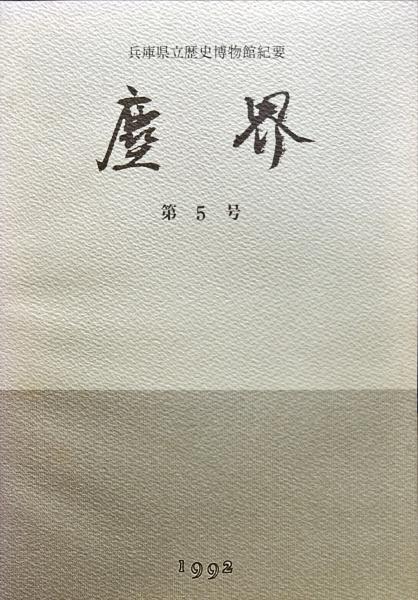 兵庫県立歴史博物館紀要
塵界
第5号
1992